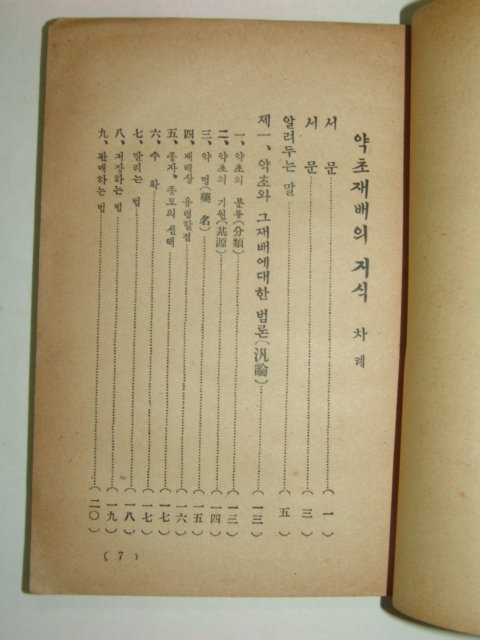 약초재배의 지식 차례
서 문……(一)
서 문……(三)
알려두는 말……(五)
제一、약초와 그재배에대한 범론(汎論)……(一三)
一、약초의 분류(分類)……(一三)
二、약초의 기원(基源)……(一四)
三、약 명(藥 名)……(一五)
四、재배상 유렴할점……(一六)
五、종자、종묘의 선택……(一七)
六、수 확……(一七)
七、말리는 법……(一八)
八、저장하는 법……(一九)
九、판매하는 법……(二〇)
( 7 )